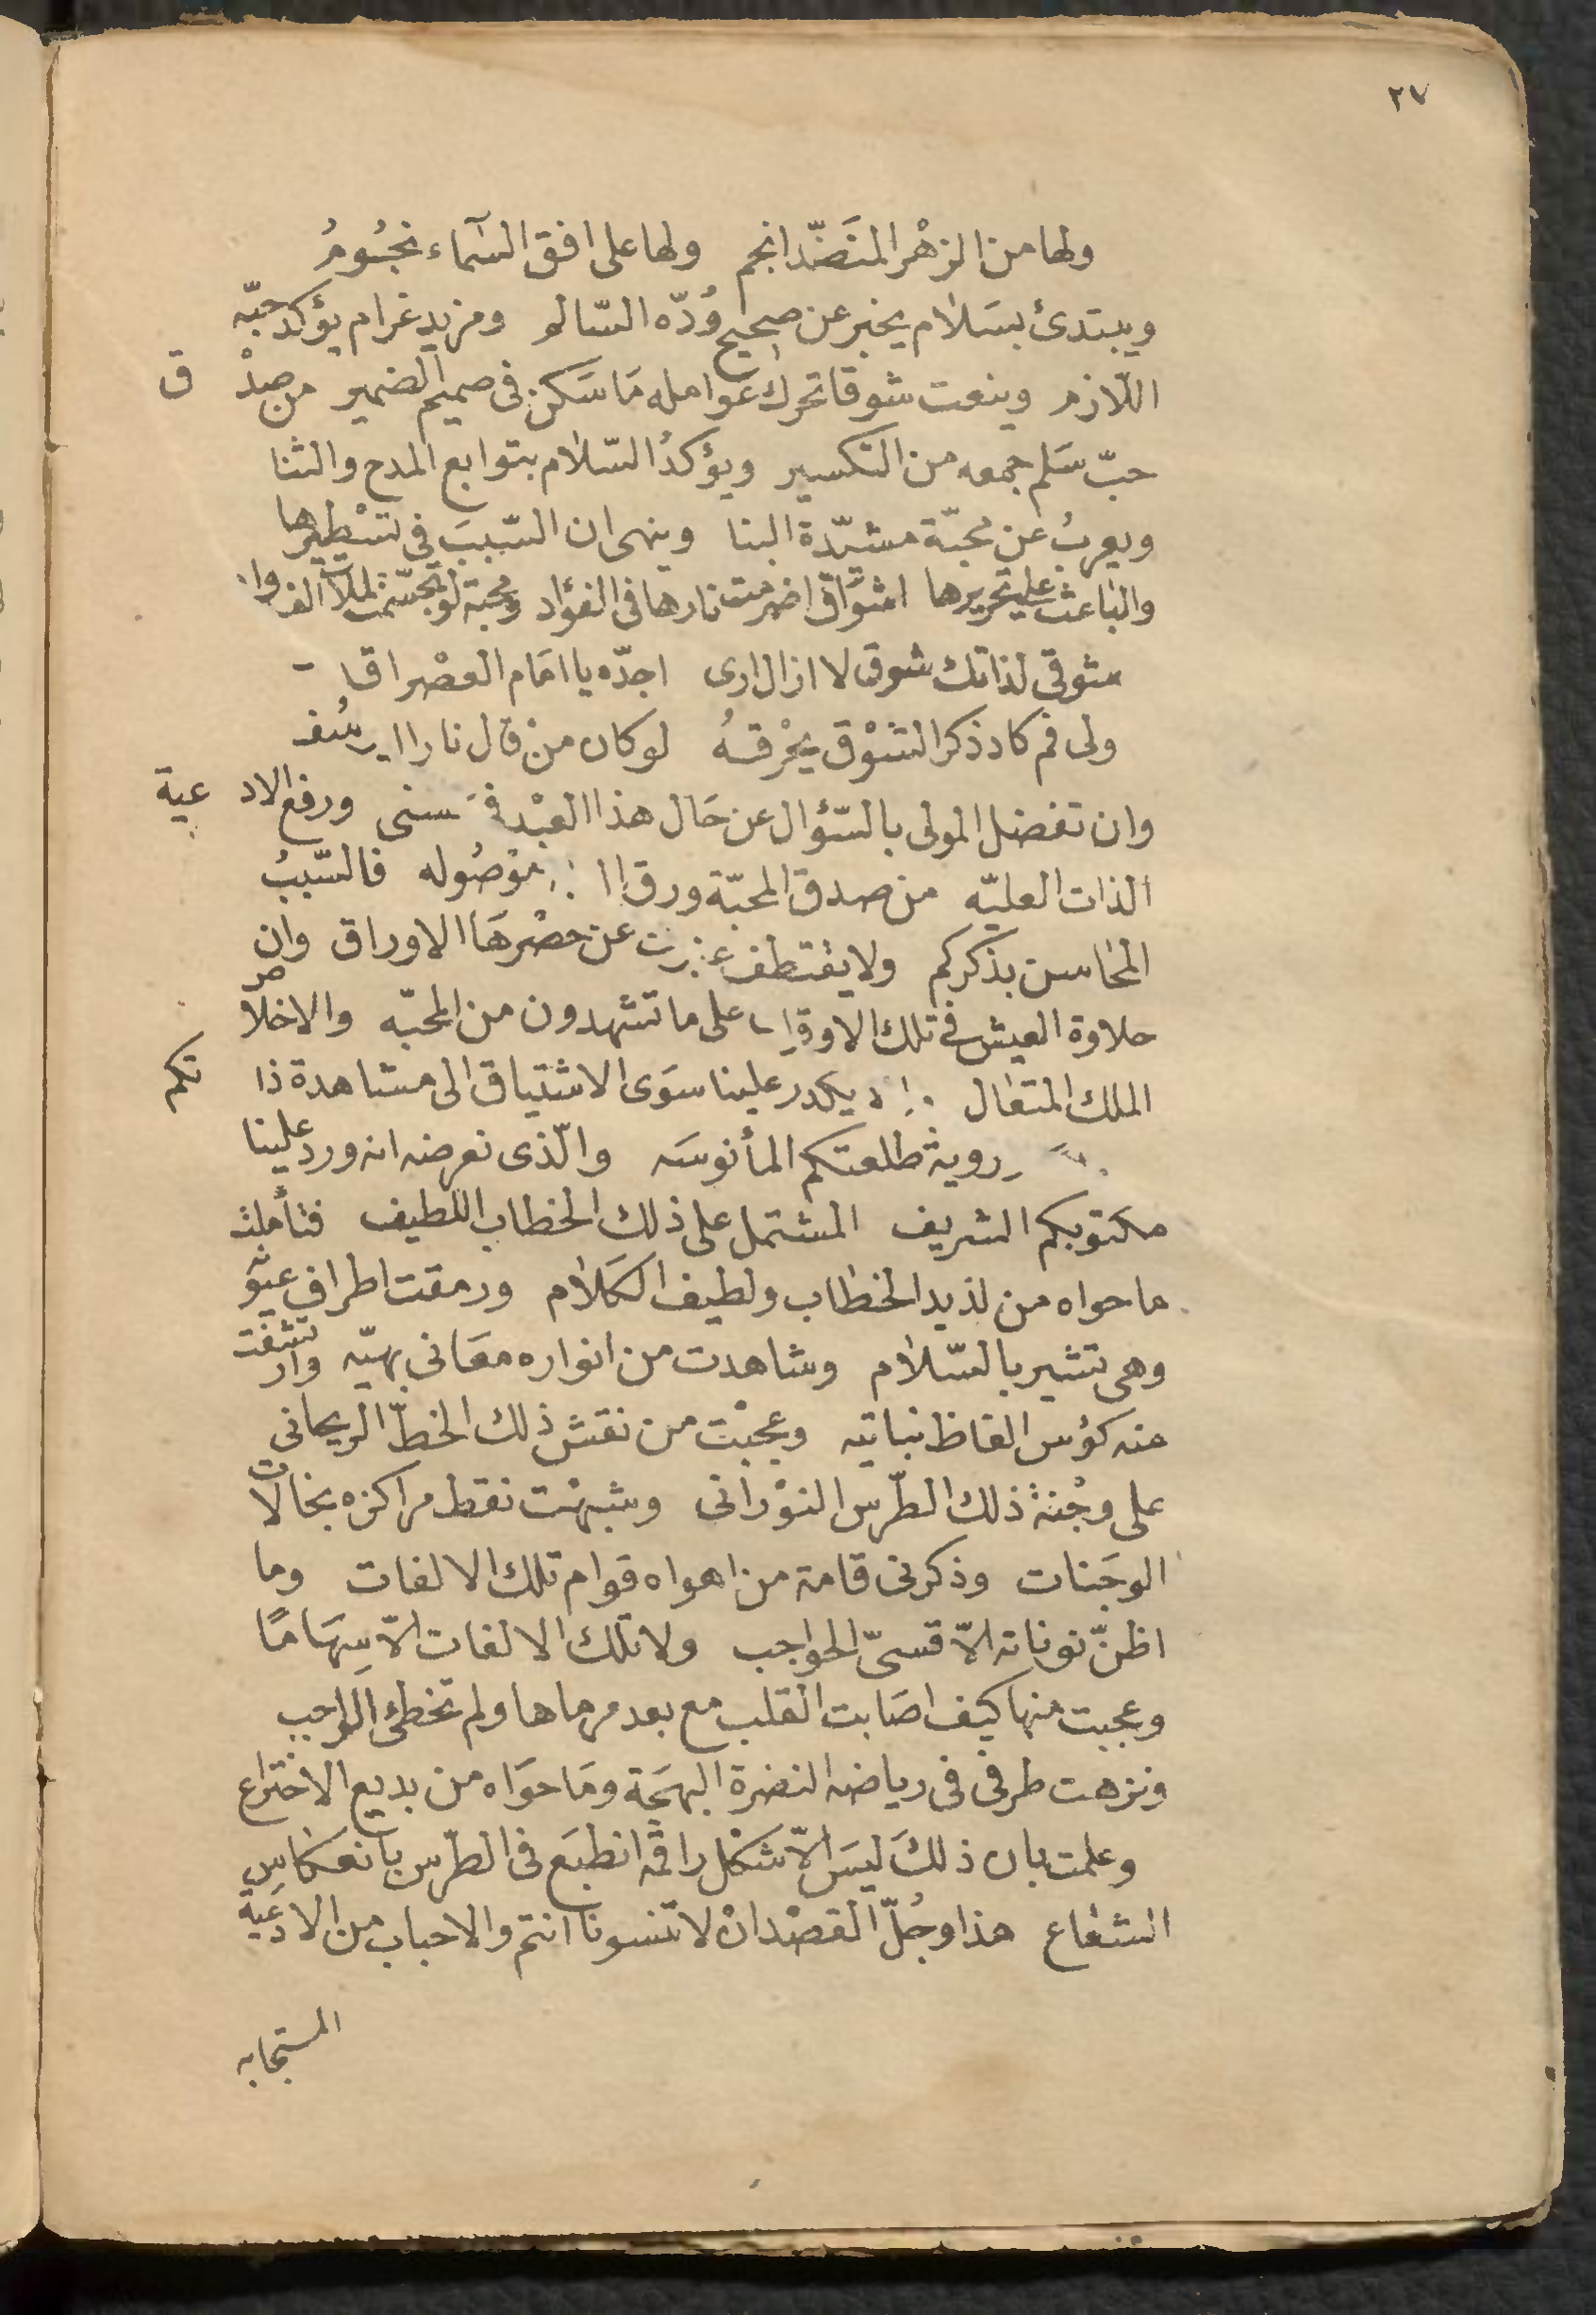 ٢٧
ولها من الزهْر المنَضّد انجم ولها على افق السَّماء نجُومُ
ويبتدئ بسَلام يخبر عن صحيح وُدّه السّالم ومزيد غرام يؤكد حبّه
اللّازم وينعت شوقا تحرك عوامله مَا سَكن فى صميم الضمير من صدْق
حبّ سَلم جمعه من التكسير ويؤكدُ السّلام بتوابع المدح والثنا
ويعربُ عن محبّة مشيّدة البنا وينهى ان السّببَ فى تسْطيرها
والباعث على تحريرها اشوَاق اضرمت نارها فى الفؤاد ومحبة لو تجسّمت لملات
شوقى لذاتك شوق لا ازال ارى اجدّه يا امَام العصْر
ولى فم كاد ذكر الشوْق يحْرقهُ لو كان منْ قال نارا
وان تفضل المولى بالسّؤال عن حَال هذا العبْد ورفع الادعية
الذات العليّه من صدق المحبّة موْصُوله فالسّببُ
المحاسن بذكركم ولا يقتطف عن حصْرهَا الاوراق وان
حلاوة العيش فى تلك الاوقات على ما تشهدون من المحبّه والاخلاص
الملك المتعَال يكدر علينا سوَى الاشتياق الى مشاهدة ذاتكم
روية طلعتكم المأنوسَه والّذى نعرضه انه ورد علينا
مكتوبكم الشريف المشتمل على ذلك الخطاب اللطيف فتأملت
ما حواه من لذيد الخطاب ولطيف الكلَام ورمقت اطراف عيونه
وهى تشير بالسّلام وشاهدت من انواره معَانى بهيّه وارتشفت
منه كؤس الفاظ نباتيه وعجبْت من نقش ذلك الخطّ الريحانى
على وجْنة ذلك الطّرس النوْرانى وشبهْت نقط مراكزه بخالات
الوجَنات وذكرنى قامة من اهواه قوام تلك الالفات وما
اظنّ نوناته الاّ قسىّ الحواجب ولا تلك الالفات الاّ سِهَامًا
وعجبت منها كيف اصَابت القلب مع بعد مرماها ولم تخطئ الواجب
ونزهت طرفى فى رياضه النضرة البهجَة ومَا حوَاه من بديع الاختراع
وعلمت بان ذلكَ ليسَ الاّ شكْل راقمه انطبَع فى الطّرس بانعكاسِ
الشعَاع هذا وجُلّ القصْد انْ لا تنسونا انتم والاحباب من الادعَية
المستجابه